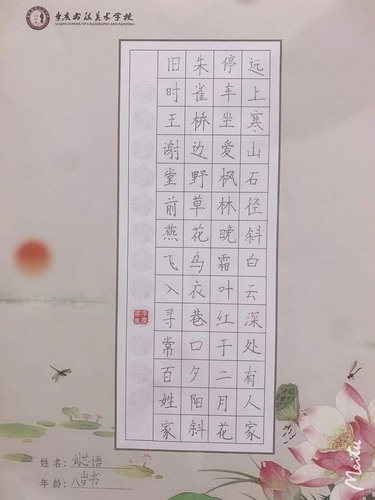 书法美术学校
SCHOOL OF CALLIGRAPHY AND PAINTING
远上寒山石径斜白云深处有人家
停车坐爱枫林晚霜叶红于二月花
朱雀桥边野草花乌衣巷口夕阳斜
旧时王谢堂前燕飞入寻常百姓家
姓名：
年龄：八岁书
Meitu